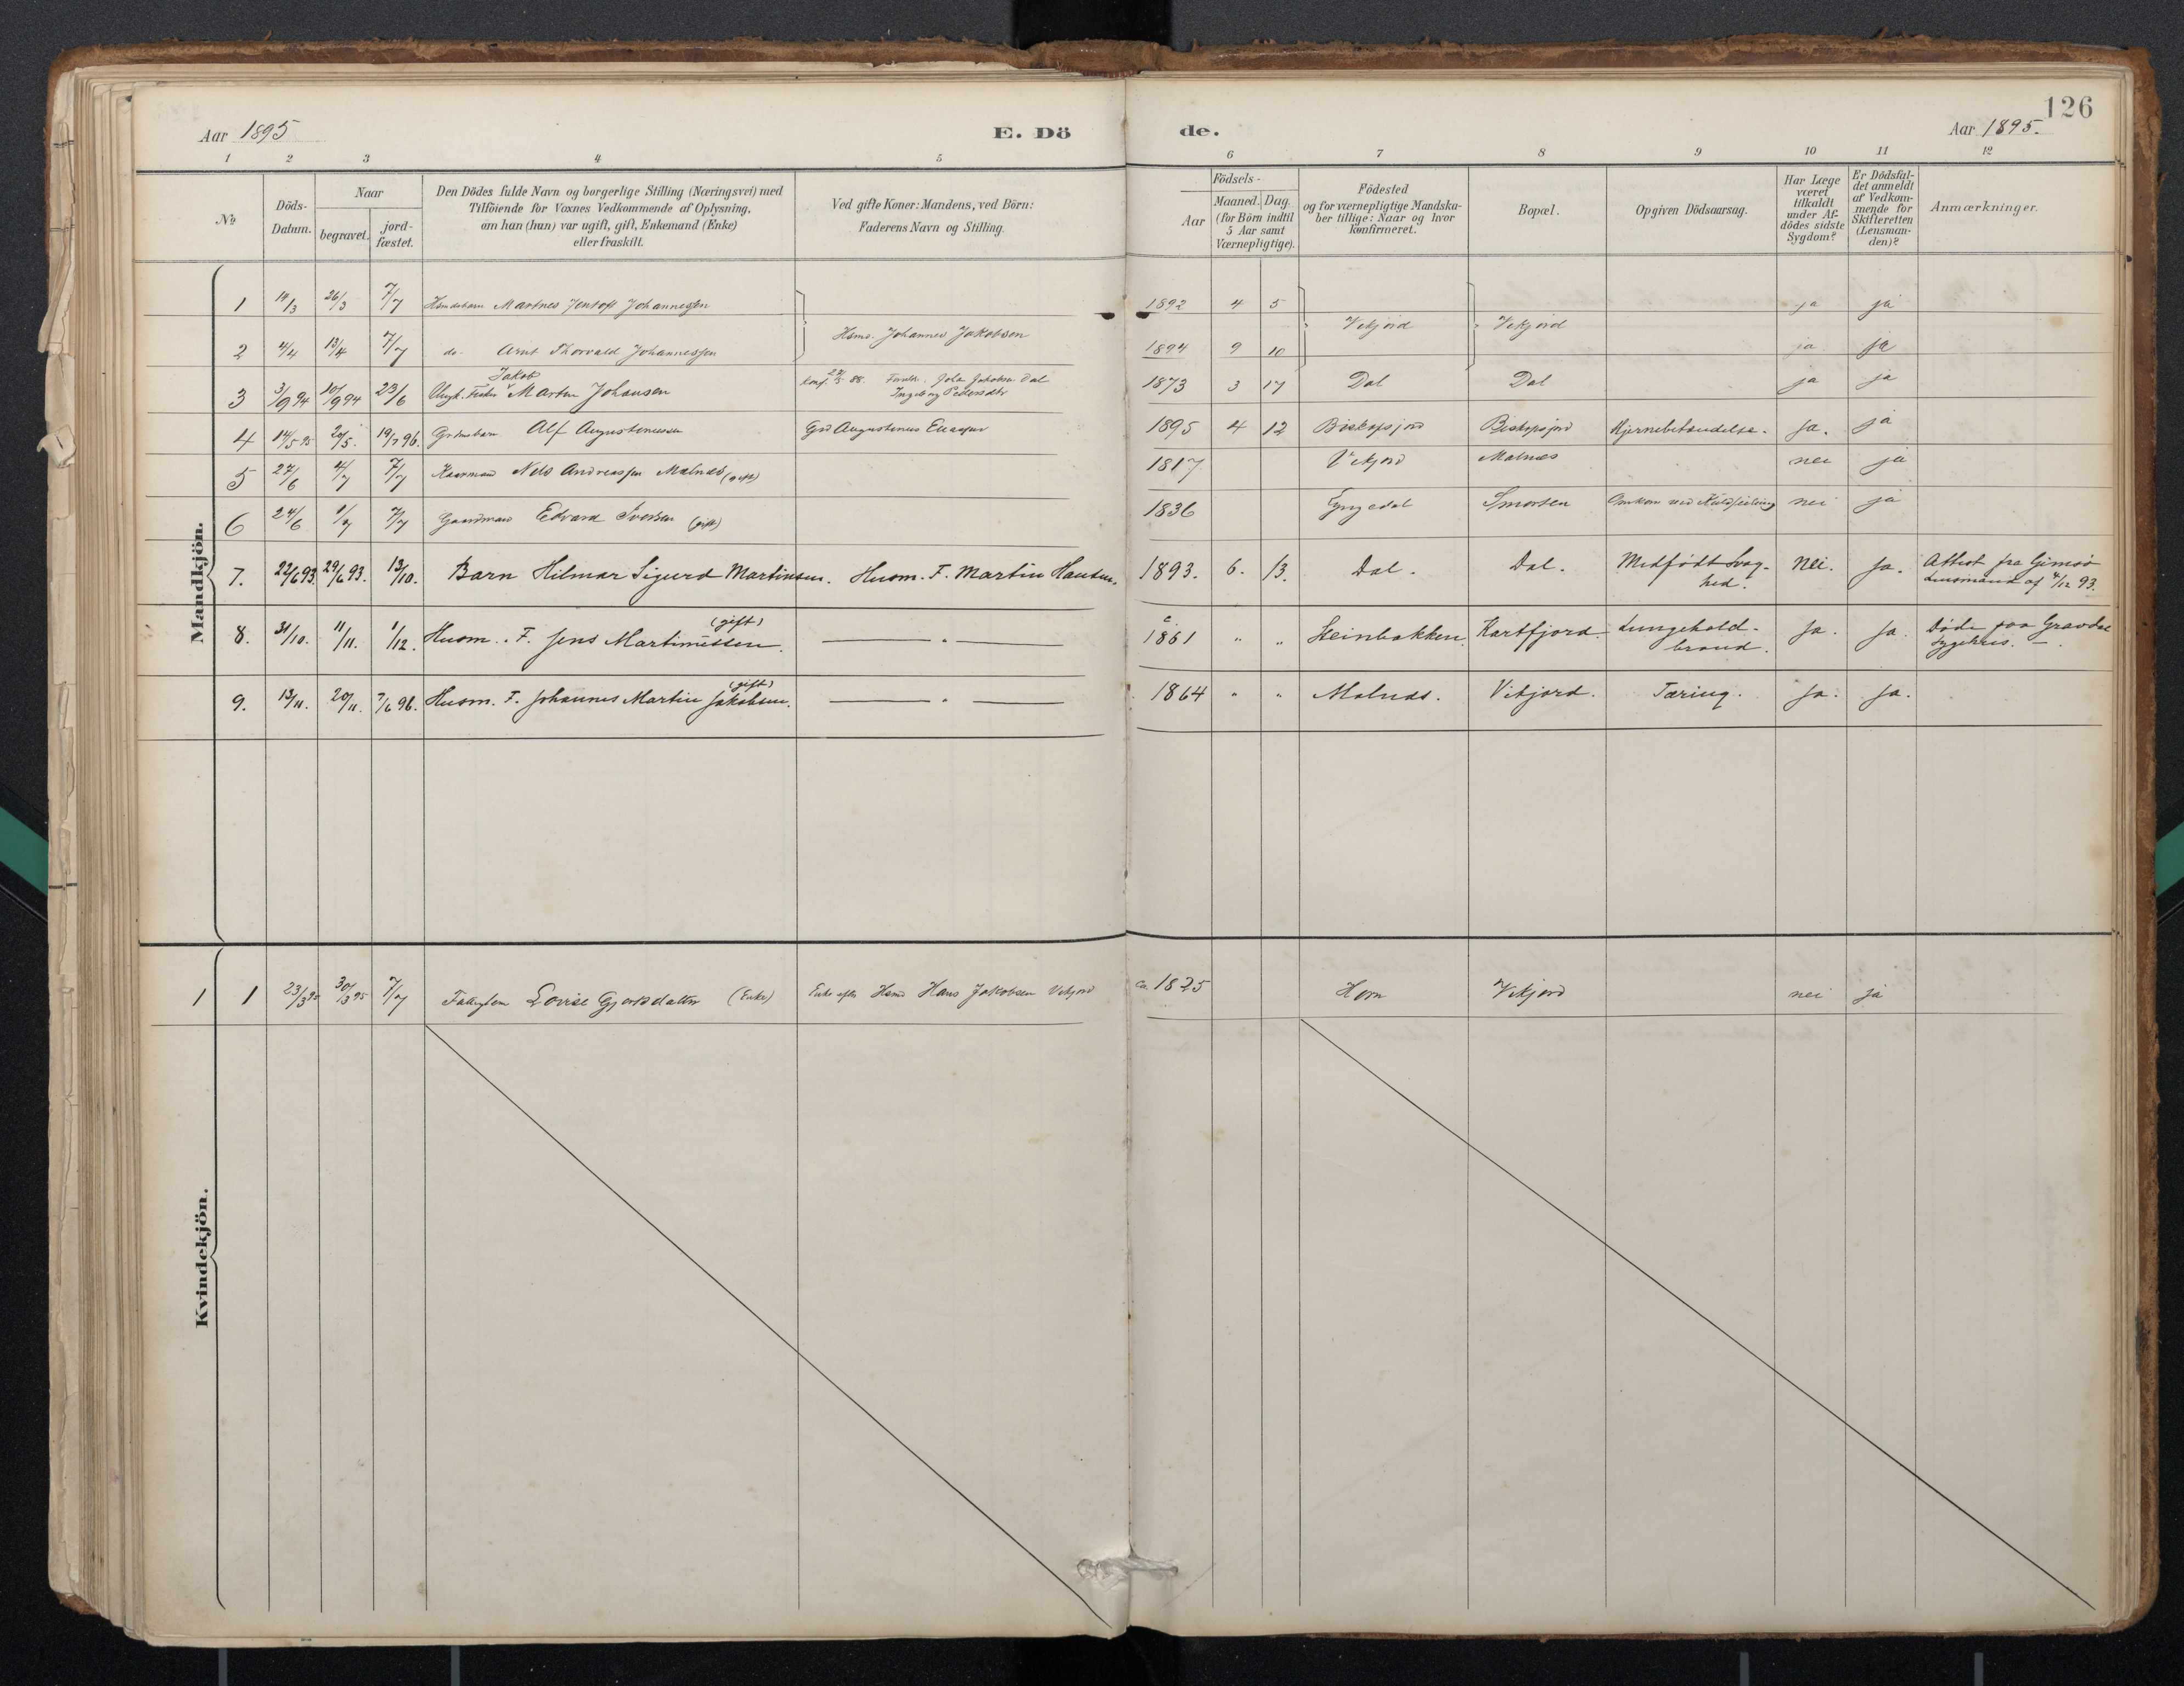 126
Aar 1895 E. Dö de. Aar 1895.
1 2 3 4 5 6 7 8 9 10 11 12
№
Döds-
Datum.
Naar
begravet.
jord-
fæstet.
Den Dödes fulde Navn og borgerlige Stilling (Næringsvei) med
Tilföiende for Voxnes Vedkommende af Oplysning,
om han (hun) var ugift, gift, Enkemand (Enke)
eller fraskilt.
Ved gifte Koner: Mandens, ved Börn:
Faderens Navn og Stilling.
Födsels-
Aar
Maaned. Dag.
(for Börn indtil
5 Aar samt
Værnepligtige).
Födested
og for værnepligtige Mandska-
ber tillige: Naar og hvor
konfirmeret.
Bopæl.
Opgiven Dödsaarsag.
Har Læge
været
tilkaldt
under Af-
dödes sidste
Sygdom?
Er Dödsfal-
det anmeldt
af Vedkom-
mende for
Skifteretten
(Lensman-
den)?
Anmærkninger.
Mandkjön.
1 14/3 26/3 7/7 Hsmdsbarn Martnes Jentoft Johannessen 1892 4 5 ja ja
Hsmd. Johannes Jakobsen Vikjord Vikjord
2 4/4 13/4 7/7 do. Arnt Thorvald Johannessen 1894 9 10 ja ja
Jakob
3 3/9 94 10/9 94 23/6 Ungk. Fisker Martin Johansen Konf. 88. Forældr. Joh. Jakobsen Dal 1873 3 17 Dal Dal ja ja
Ingeborg Pedersdtr
4 14/5 95 20/5. 19/7 96. Grdmsbarn Alf Augustinussen Grd Augustinus 1895 4 12 Biskopsjord Biskopsjord Hjernebetændelse. ja. ja
5 27/6 4/7 7/7 Kaarmand Nels Andreassen Malnæs (gift) 1817 Vikjord Malnæs nei ja
6 24/6 1/7 7/7 Gaardmand Edvard Iversen (gift) 1836 Smorten Omkom ved Kuldseiling nei ja
7. 22/6 93. 29/6 93. 13/10. Barn Hilmar Sigurd Martinsen. Husm. F. Martin Hansen. 1893. 6. 13. Dal. Dal. Medfødt Svag- Nei. Ja. Attest fra Gimsø
hed. Lensmand af 4/12 93.
(gift) c
8. 31/10. 11/11. 1/12. Husm. F. Jens Martinussen. — " — 1861 " " Steinbakken. Kartfjord. Lungekold- Ja. Ja. Døde paa Gravdal
brand. Sygehus. —
(gift)
9. 13/11. 20/11. 7/6 96. Husm. F. Johannes Martin Jakobsen. — " — 1864 " " Malnæs. Vikjord. Tæring. Ja. Ja.
Kvindekjön.
1 1 23/3 95 30/3 95 7/7 Lovise Gjertsdatter (Enke) Enke efter Hsmd Hans Jakobsen Vikjord ca 1825 Horn Vikjord nei ja